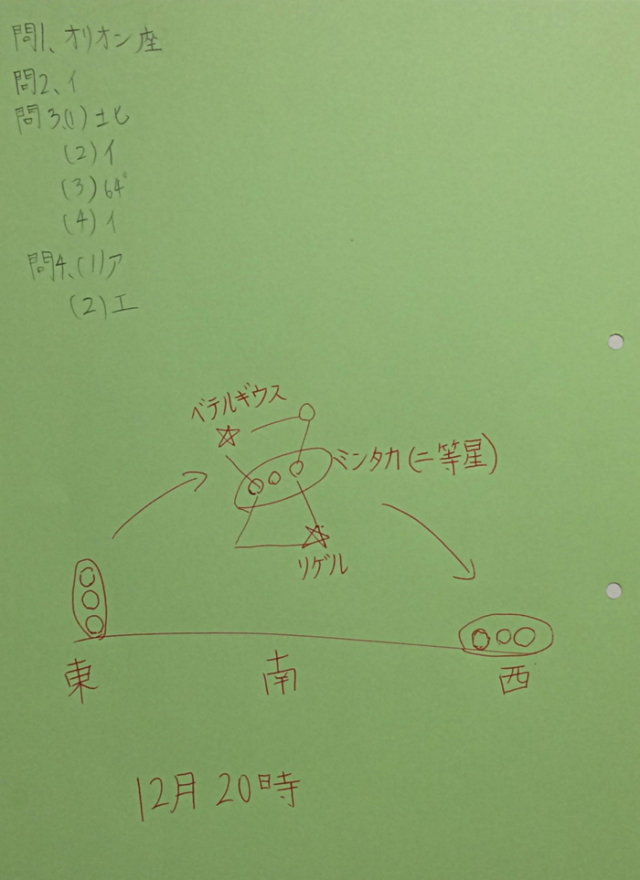 問1、オリオン座
問2、イ
問3、(1)土ヒ
(2)イ
(3)64°
(4)イ
問4、(1)ア
(2)エ
ベテルギウス
ミンタカ(二等星)
リゲル
東
南
西
12月 20時